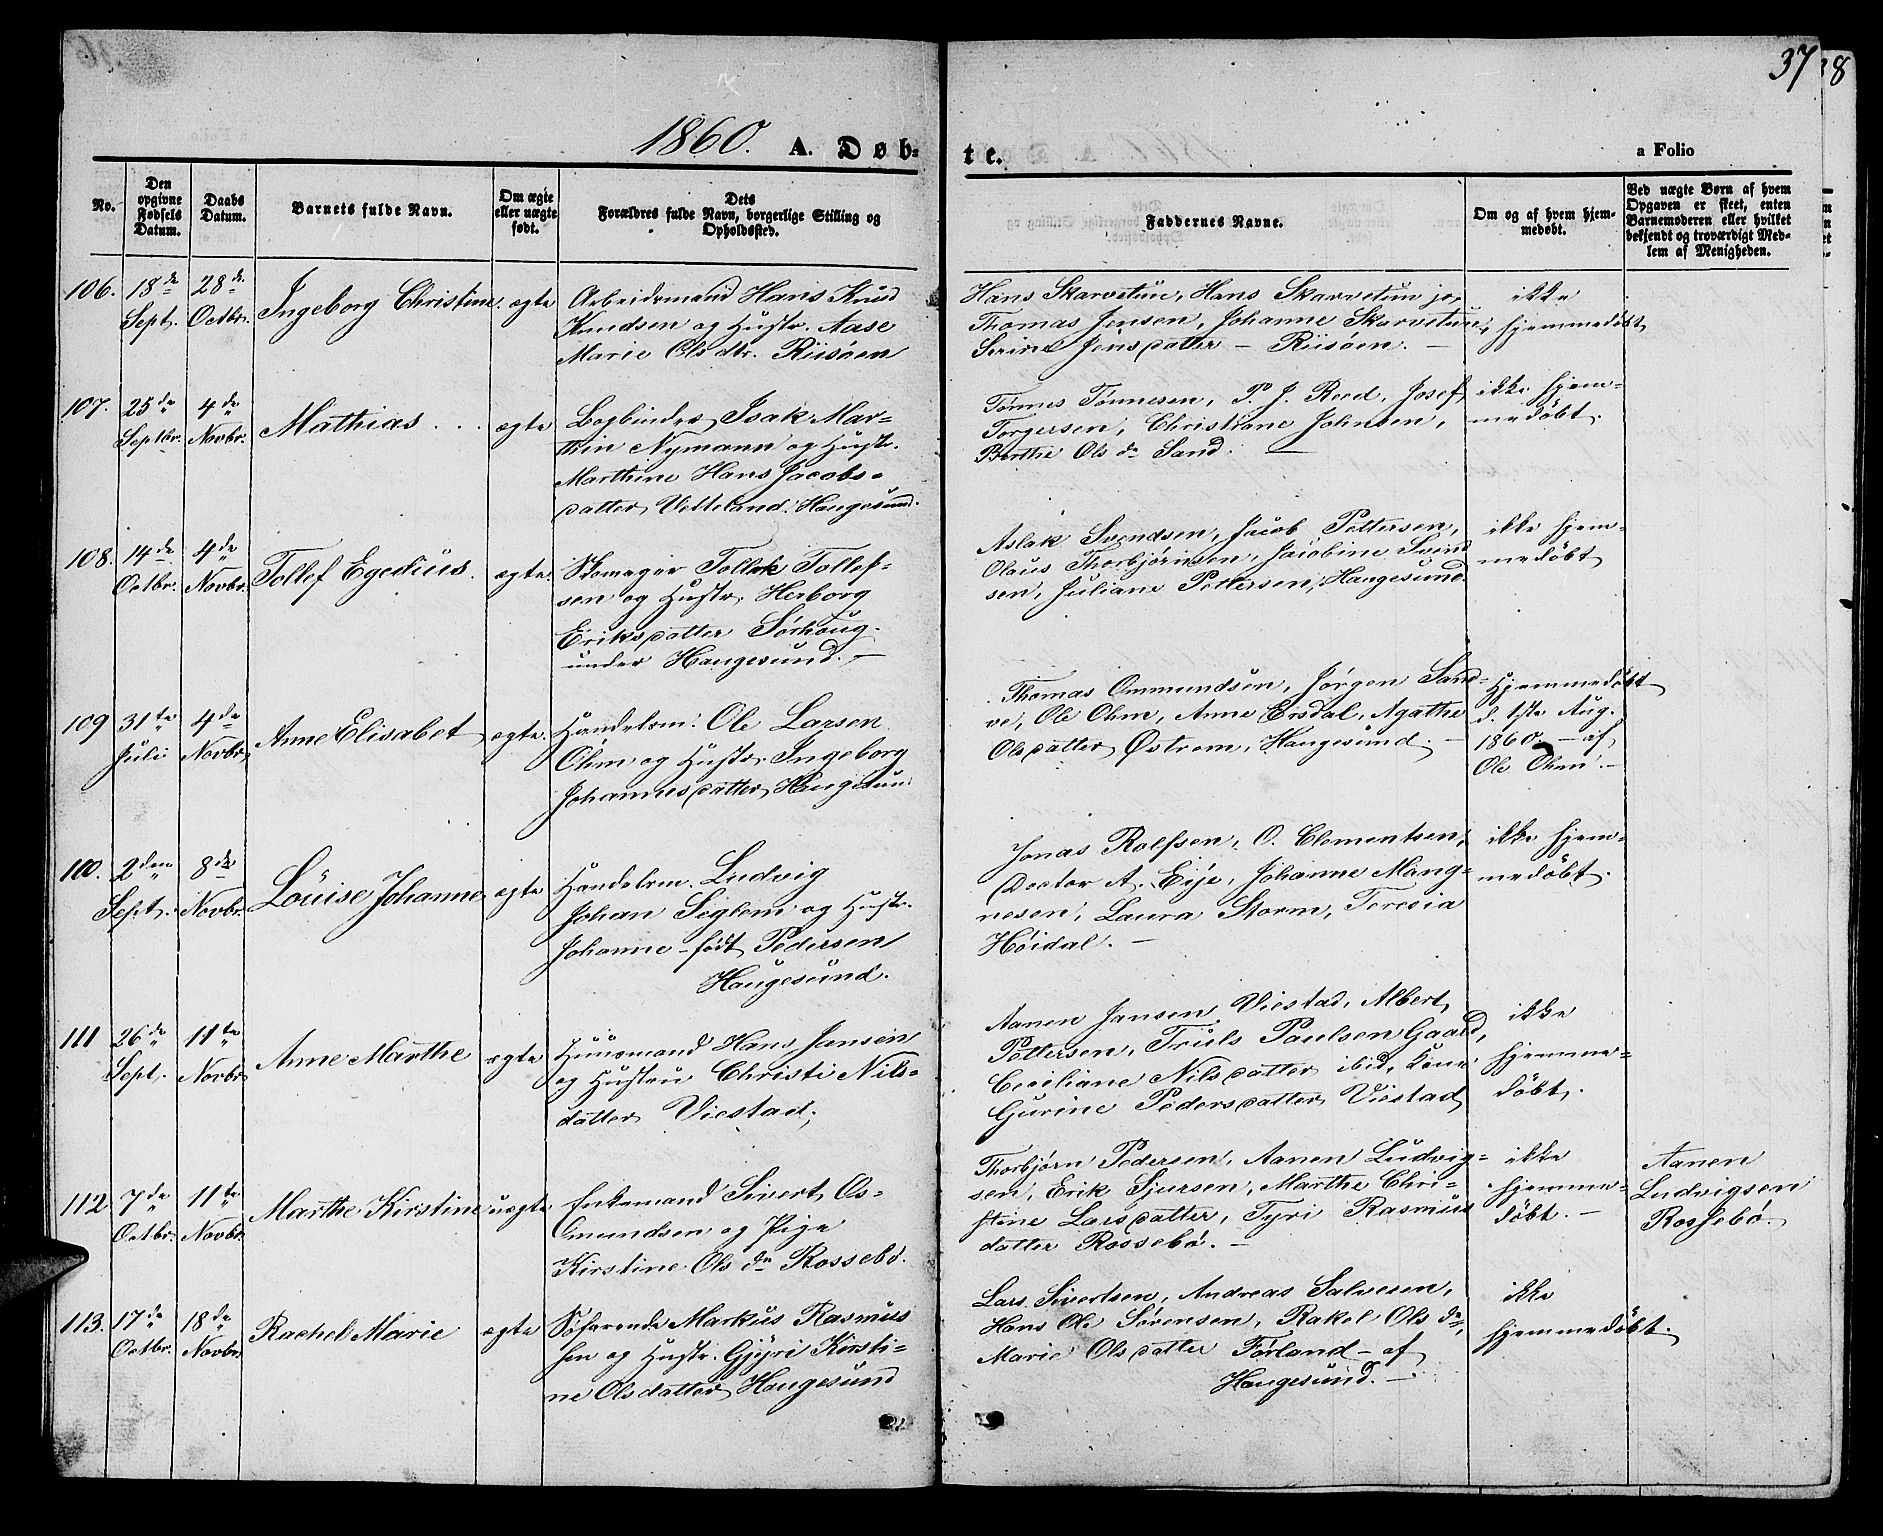 37
38
1860. A. Døb-
te.
a Folio
No.
Den opgivne Fødsels Datum.
Daabs Datum.
Barnets fulde Navn.
Om ægte eller uægte født.
Dets Forældres fulde Navn, borgerlige Stilling og Opholdssted.
Faddernes Navne.
Om og af hvem hjemmedøbt.
Ved uægte Børn af hvem Opgaven er skeet, enten Barnemoderen eller hvilket bekjendt og troværdigt Medlem af Menigheden.
106.
18de
Sept.
28de
Octbr.
Ingeborg Christine
ægte
Arbeidsmand Hans Knud
Knudsen og Hustr. Aase
Marie Ols dtr. Riisøen
Hans Skarvetun, Hans Skarvetun jr,
Thomas Jensen, Johanne Skarvetun,
Serine Jensdatter – Riisøen. –
ikke
hjemmedøbt
107.
25de
Septbr.
4de
Novbr.
Mathias . . .
ægte
Bogbinder Isak Mar-
thin Nymann og Hustr.
Marthine Hans Jacobs-
datter Velteland. Haugesund.
Tønnes Tønnesen, P. J. Reed, Josef
Torgersen, Christiane Johnsen,
Berthe Ols dr Sand. –
ikke hjem-
medøbt.
108.
14de
Octbr.
4de
Novbr.
Tollef Egedius.
ægte.
Skomager Tollek Tollef-
sen og Hustr. Herborg
Eriksdatter Sørhoug.
under Haugesund. –
Aslak Svendsen, Jacob Pettersen,
Olaus Thorbjørnsen, Jacobine Svend
sen, Juliane Pettersen, Haugesund.
ikke hjem-
medøbt
109
31te
Juli
4de
Novbr.
Anne Elisabet
ægte.
Handelsm: Ole Larsen
Ohm og Hustr. Ingeborg
Johannesdatter, Haugesun:
Thomas Ommundsen, Jørgen Sand-
ve, Ole Ohm, Anne Ersdal, Agathe
Olsdatter Østrem, Haugesund. –
Hjemmedøbt
d. 1ste Aug.
1860. – af
Ole Ohm. –
110.
2den
Sept.
8de
Novbr.
Louise Johanne
ægte
Handelsm. Ludvig
Johan Seglem og Hustr.
Johanne – født Pedersen
Haugesund.
Jonas Rolfsen, O. Clementsen,
Doctor A. Eije, Johanne Mang-
nesen, Laura Storm, Teresia
Høidal. –
ikke hjem-
medøbt.
111
26de
Sept.
11te
Novbr
Anne Marthe
ægte
Huusmand Hans Jansen
og Hustru Christi Nils-
datter Viestad,
Aanen Jansen Viestad, Albert
Pettersen, Truls Paulsen Gaard,
Ceciliane Nilsdatter ibid, Kone
Gurine Pedersdatter Viestad
ikke
hjemme-
døbt.
112
7de
Octbr.
11te
Novbr.
Marthe Kirstine
uægte
Enkemand Sivert Os-
mundsen og Pige
Kirstine Ols dr Rossebø.
Thorbjørn Pedersen, Aanen Ludvig-
sen, Erik Sjursen, Marthe Chri-
stine Larsdatter, Tyri Rasmus
datter Rossebø. –
ikke
hjemme-
døbt. –
Aanen
Ludvigsen
Rossebø.
113.
17de
Octbr.
18de
Novbr.
Rachel Marie
ægte
Søfarende Markus Rasmus
sen og Hustr. Gjyri Kirsti-
ne Olsdatter Haugesund
Lars Sivertsen, Andreas Salvesen,
Hans Ole Sørensen, Rakel Ols dr,
Marie Olsdatter Førland – af
Haugesund. –
ikke
hjemmedøbt.